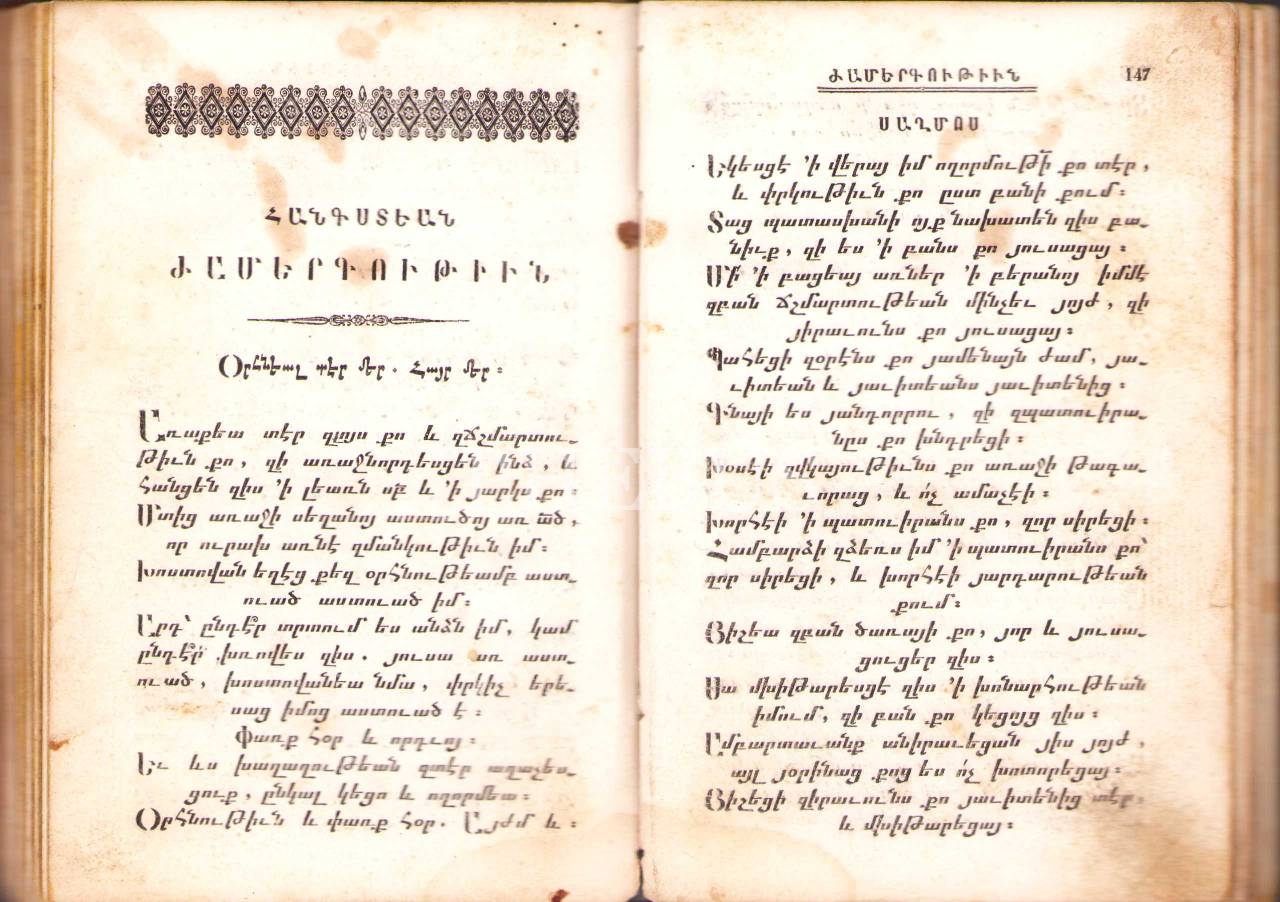 ՀԱՆԳՍՏԵԱՆ
ԺԱՄԵՐԳՈՒԹԻՒՆ
Օրհնեալ տէր մեր. Հայր մեր։
Առաքեա տէր զլոյս քո և զճշմարտու-
թիւն քո, զի առաջնորդեսցեն ինձ, և
հանցեն զիս ՚ի լեառն սբ և ՚ի յարկս քո։
Մտից առաջի սեղանոյ աստուծոյ առ ած,
որ ուրախ առնէ զմանկութիւն իմ։
Խոստովան եղէց քեզ օրհնութեամբ աստ-
ուած աստուած իմ։
Արդ՝ ընդէ՞ր տրտում ես անձն իմ, կամ
ընդէ՞ր խռովես զիս. յուսա առ աստ-
ուած, խոստովանեա նմա, փրկիչ երե-
սաց իմոց աստուած է։
Փառք հօր և որդւոյ։
Եւ ևս խաղաղութեան զտէր աղաչես-
ցուք, ընկալ կեցո և ողորմեա։
Օրհնութիւն և փառք հօր. Այժմ և։
ԺԱՄԵՐԳՈՒԹԻՒՆ 147
ՍԱՂՄՈՍ
Եկեսցէ ՚ի վերայ իմ ողորմութի քո տէր,
և փրկութիւն քո ըստ բանի քում։
Տաց պատասխանի ոյք նախատեն զիս բա-
նիւք, զի ես ՚ի բանս քո յուսացայ։
Մի՛ ՚ի բացեայ առներ ՚ի բերանոյ իմմէ
զբան ճշմարտութեան մինչեւ յոյժ, զի
յիրաւունս քո յուսացայ։
Պահեցի զօրէնս քո յամենայն ժամ, յա-
ւիտեան և յաւիտեանս յաւիտենից։
Գնայի ես յանդորրու, զի զպատուիրա-
նըս քո խնդրեցի։
Խօսէի զվկայութիւնս քո առաջի թագա-
ւորաց, և ո՛չ ամաչէի։
Խորհէի ՚ի պատուիրանս քո, զոր սիրեցի։
Համբարձի զձեռս իմ ՚ի պատուիրանս քո՝
զոր սիրեցի, և խորհէի յարդարութեան
քում։
Յիշեա զբան ծառայի քո, յոր և յուսա-
ցուցեր զիս։
Սա մխիթարեսցէ զիս ՚ի խոնարհութեան
իմում, զի բան քո կեցոյց զիս։
Ամբարտաւանք անիրաւեցան յիս յոյժ,
այլ յօրինաց քոց ես ո՛չ խոտորեցայ։
Յիշեցի զիրաւունս քո յաւիտենից տէր։
և մխիթարեցայ։